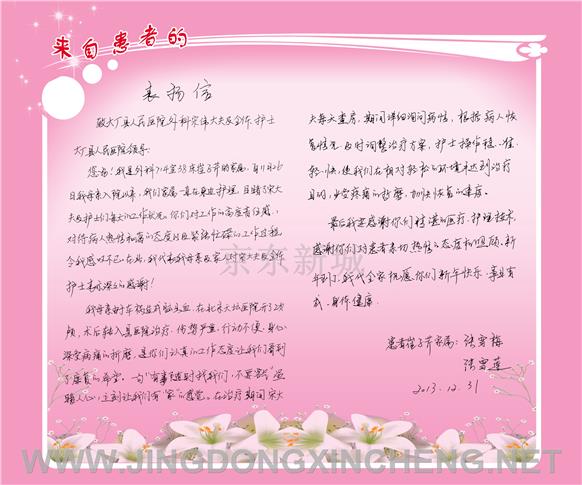 来自患者的
表扬信
致大厂县人民医院外科宋伟大夫及全体护士
大厂县人民医院领导:
您好!我是外科714室38床崔子芹的家属,自11月26
日我母亲入院以来,我们家属一直在身边护理,目睹了宋大
夫及护士们每天的工作状况。你们对工作的高度责任感,
对待病人热情和蔼的态度以及紧张忙碌的工作过程
令我感动不已。在此,我代表我母亲及家人对宋大夫及全体
护士表示深深的感谢!
我母亲由于车祸造成脑出血,在北京天坛医院开了2次
颅,术后转入县医院治疗,伤势严重,行动不便,身心
深受病痛的折磨,是你们认真的工作态度让我们看到
了康复的希望。一句“有事随时找我们,不要客气”温
暖人心,立刻让我们有“家”的感觉。在治疗期间宋大
夫每天查房,期间详细询问病情,根据病人恢
复情况及时调整治疗方案,护士操作稳、准、
轻、快,使我们在相对轻松的环境来达到治疗
目的,少受疼痛的折磨,加快恢复的速度。
最后我要感谢你们精湛的医疗、护理技术,
感谢你们对患者亲切、热情的态度和照顾,新
年到了,我代全家祝愿你们新年快乐,事业有
成,身体健康。
患者崔子芹家属:张雪梅
张雪莲
2013.12.31
京东新城
WWW.JINGDONGXINCHENG.NET